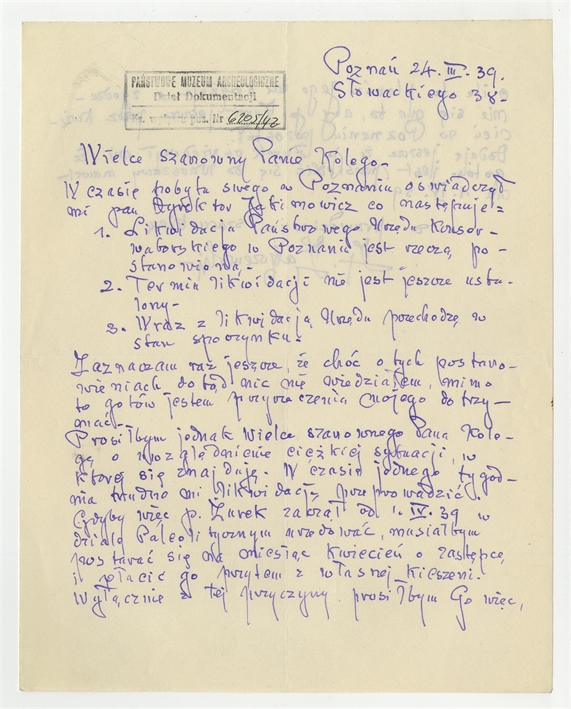 Poznań 24. III. 39.
Słowackiego 38-
PAŃSTWOWE MUZEUM ARCHEOLOGICZNE
Dział Dokumentacji
Nr 6205/42
Wielce szanowny Panie Kolego-
W czasie pobytu swego w Poznaniu oświadczył
mi pan Dyrektor Jakimowicz co następuje:
1. Likwidacja Państwowego Urzędu Konser-
watorskiego w Poznaniu jest rzeczą po-
stanowioną.-
2. Termin likwidacji nie jest jeszcze usta-
lony-
3. Wraz z likwidacją Urzędu przechodzę w
stan spoczynku-
Zaznaczam raz jeszcze, że choć o tych postano-
wieniach dotąd nic nie wiedziałem, mimo
to gotów jestem przyrzeczenia mojego dotrzy-
mać-
Prosiłbym jednak wielce szanownego Pana Kole-
gę o uwzględnienie ciężkiej sytuacji, w
której się znajduję. W czasie jednego tygod-
nia trudno mi likwidację przeprowadzić
Gdyby więc p. Żurek zaczął od 1. IV. 39 w
dziale Paleolitycznym urzędować, musiałbym
postarać się na miesiąc kwiecień o zastępcę
i płacić go przytem z własnej kieszeni-
Wyłącznie z tej przyczyny prosiłbym Go więc,